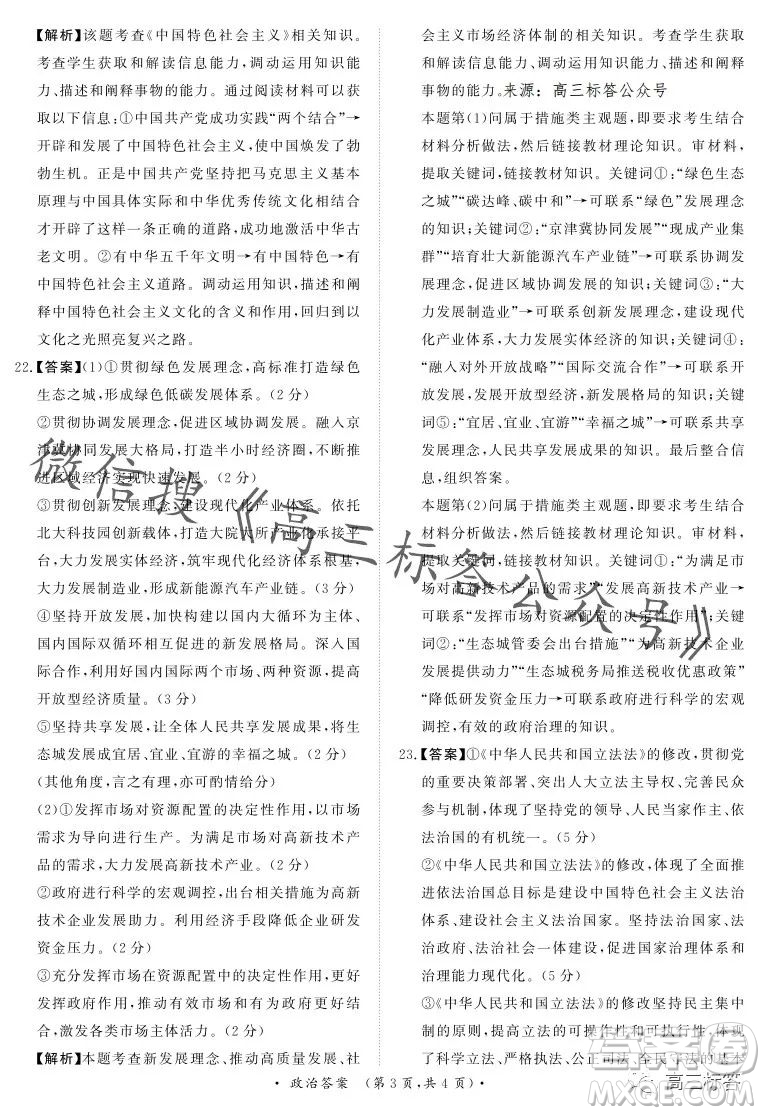 【解析】该题考查《中国特色社会主义》相关知识。
考查学生获取和解读信息能力,调动运用知识能
力、描述和阐释事物的能力。通过阅读材料可以获
取以下信息:①中国共产党成功实践“两个结合”→
开辟和发展了中国特色社会主义,使中国焕发了勃
勃生机。正是中国共产党坚持把马克思主义基本
原理与中国具体实际和中华优秀传统文化相结合
才开辟了这样一条正确的道路,成功地激活中华古
老文明。②有中华五千年文明→有中国特色→有
中国特色社会主义道路。调动运用知识,描述和阐
释中国特色社会主义文化的含义和作用,得出以
文化之光照亮复兴之路。
22.【答案】(1)①贯彻绿色发展理念,高标准打造绿色
生态之城,形成绿色低碳发展体系。(2分)
②贯彻协调发展理念,促进区域协调发展。融入京
津冀协同发展大格局,打造半小时经济圈,不断推
进区域经济实现快速发展。(2分)
③贯彻创新发展理念,建设现代化产业体系。依托
北大科技园创新载体,打造大院大所产业化承接平
台,发展实体经济,筑牢现代化经济体系根基,
大力发展制造业,形成新能源汽车产业链。(3分)
④贯彻开放发展,构建以国内大循环为主体、
国内国际双循环相互促进的新发展格局。深入国
际合作,利用好国内国际两个市场、两种资源,提高
开放型经济质量。(3分)
⑤坚持共享发展,让全体人民共享发展成果,将生
态城发展成宜居、宜业、宜游的幸福之城。(2分)
(其他角度,言之有理,亦可酌情给分)
(2)①发挥市场对资源配置的决定性作用,以市场
需求为导向进行生产。为满足市场对高新技术产
品的需求,大力发展高新技术产业。(2分)
②政府进行科学的宏观调控,出台相关措施为高新
技术企业发展助力。利用经济手段降低企业研发
资金压力。(2分)
③充分发挥市场在资源配置中的决定性作用,更好
发挥政府作用,推动有效市场和有为政府相结合,
激发各类市场主体活力。(2分)
【解析】本题考查新发展理念、推动高质量发展、社
会主义市场经济体制的相关知识。考查学生获取
和解读信息能力,调动运用知识能力、描述和阐释
事物的能力。来源:高三标答公众号
本题第(1)问属于措施类主观题,即要求考生结合
材料分析做法,然后链接教材理论知识。审材料,
提取关键词,链接教材知识。关键词①:“绿色生态
之城”“碳达峰、碳中和”→可联系“绿色”发展理
念;关键词②:“京津冀协同发展”“现成产业集
群”“培育壮大新能源汽车产业链”→可联系协调发
展理念,促进区域协调发展的知识;关键词③:“大
力发展制造业”→可联系创新发展理念,建设现代
化产业体系,发展实体经济的知识;关键词④:
“对外开放战略”“国际交流合作”→可联系开放发
展理念,发展开放型经济,新发展格局的知识;关键
词⑤:“宜居、宜业、宜游”“幸福之城”→可联系共享
发展理念,人民共享发展成果的知识。最后整合信
息,组织答案。
本题第(2)问属于措施类主观题,即要求考生结合
材料分析做法,然后链接教材理论知识。审材料,
提取关键词,链接教材知识。关键词①:“为满足
市场对高新技术产品的需求”“发展高新技术产业”→
可联系“发挥市场对资源配置的决定性作用”;关键
词②:“生态城管委会出台措施”“为高新技术企业
发展提供动力”“生态城税务局推送税收优惠政策”
“降低研发资金压力→可联系政府进行科学的宏观
调控,有效的政府治理的知识。
23.【答案】①《中华人民共和国立法法》的修改,贯彻党
的重要决策部署、突出人大立法主导权、完善民众
参与机制,坚持党的领导、人民当家作主、依
法治国的有机统一。(5分)
②《中华人民共和国立法法》的修改,体现了全面依
法治国总目标是建设中国特色社会主义法治体
系、建设社会主义法治国家。坚持法治国家、法治
政府、法治社会一体建设,推进国家治理体系和
治理能力现代化。(5分)
③《中华人民共和国立法法》的修改坚持民主集中
制的原则,提高立法的可操作性和可执行性,体现
了科学立法、严格执法、公正司法、全民守法的
政治答案 (第3页,共4页)
微信搜《高三标答公众号》
答案圈
高三标答